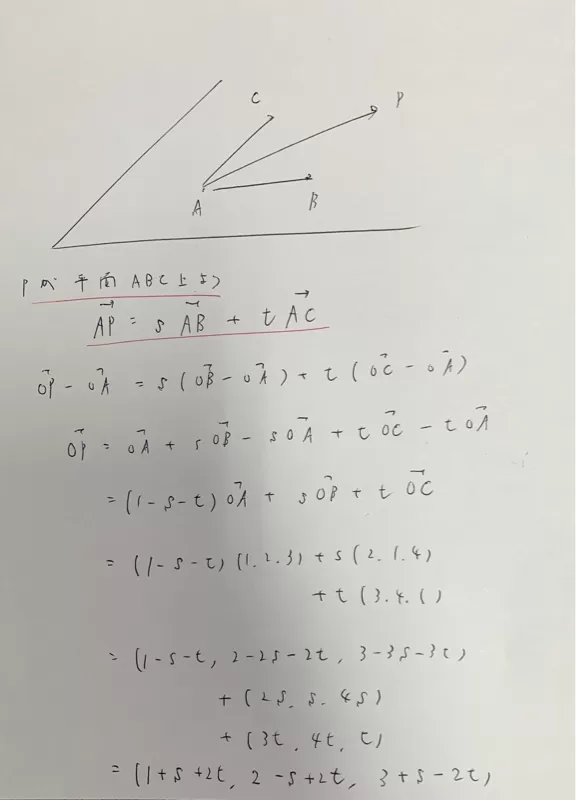 C
P
A
B
Pが平面ABC上より
AP→ = sAB→ + tAC→
OP→ - OA→ = s(OB→ - OA→) + t(OC→ - OA→)
OP→ = OA→ + sOB→ - sOA→ + tOC→ - tOA→
= (1-s-t)OA→ + sOB→ + tOC→
= (1-s-t)(1.2.3) + s(2.1.4)
+ t(3.4.1)
= (1-s-t, 2-2s-2t, 3-3s-3t)
+ (2s, s. 4s)
+ (3t, 4t, t)
= (1+s+2t, 2-s+2t, 3+s-2t)